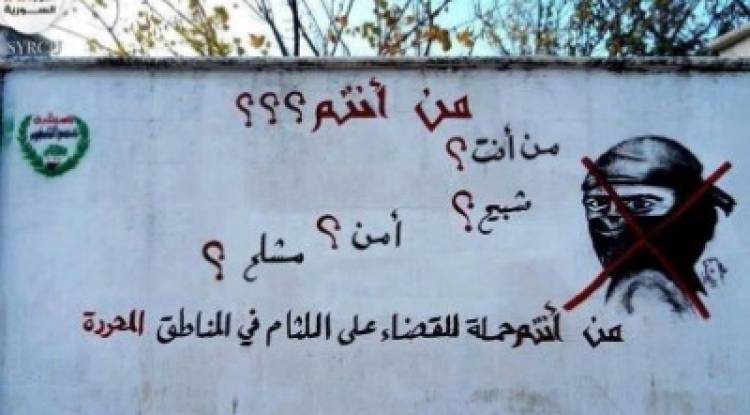 السورية
SYRCU
من أنتم؟؟؟
من أنت؟
شبيح؟
أمن؟
مشلح؟
من أنتم حملة للقضاء على اللثام في المناطق المحررة